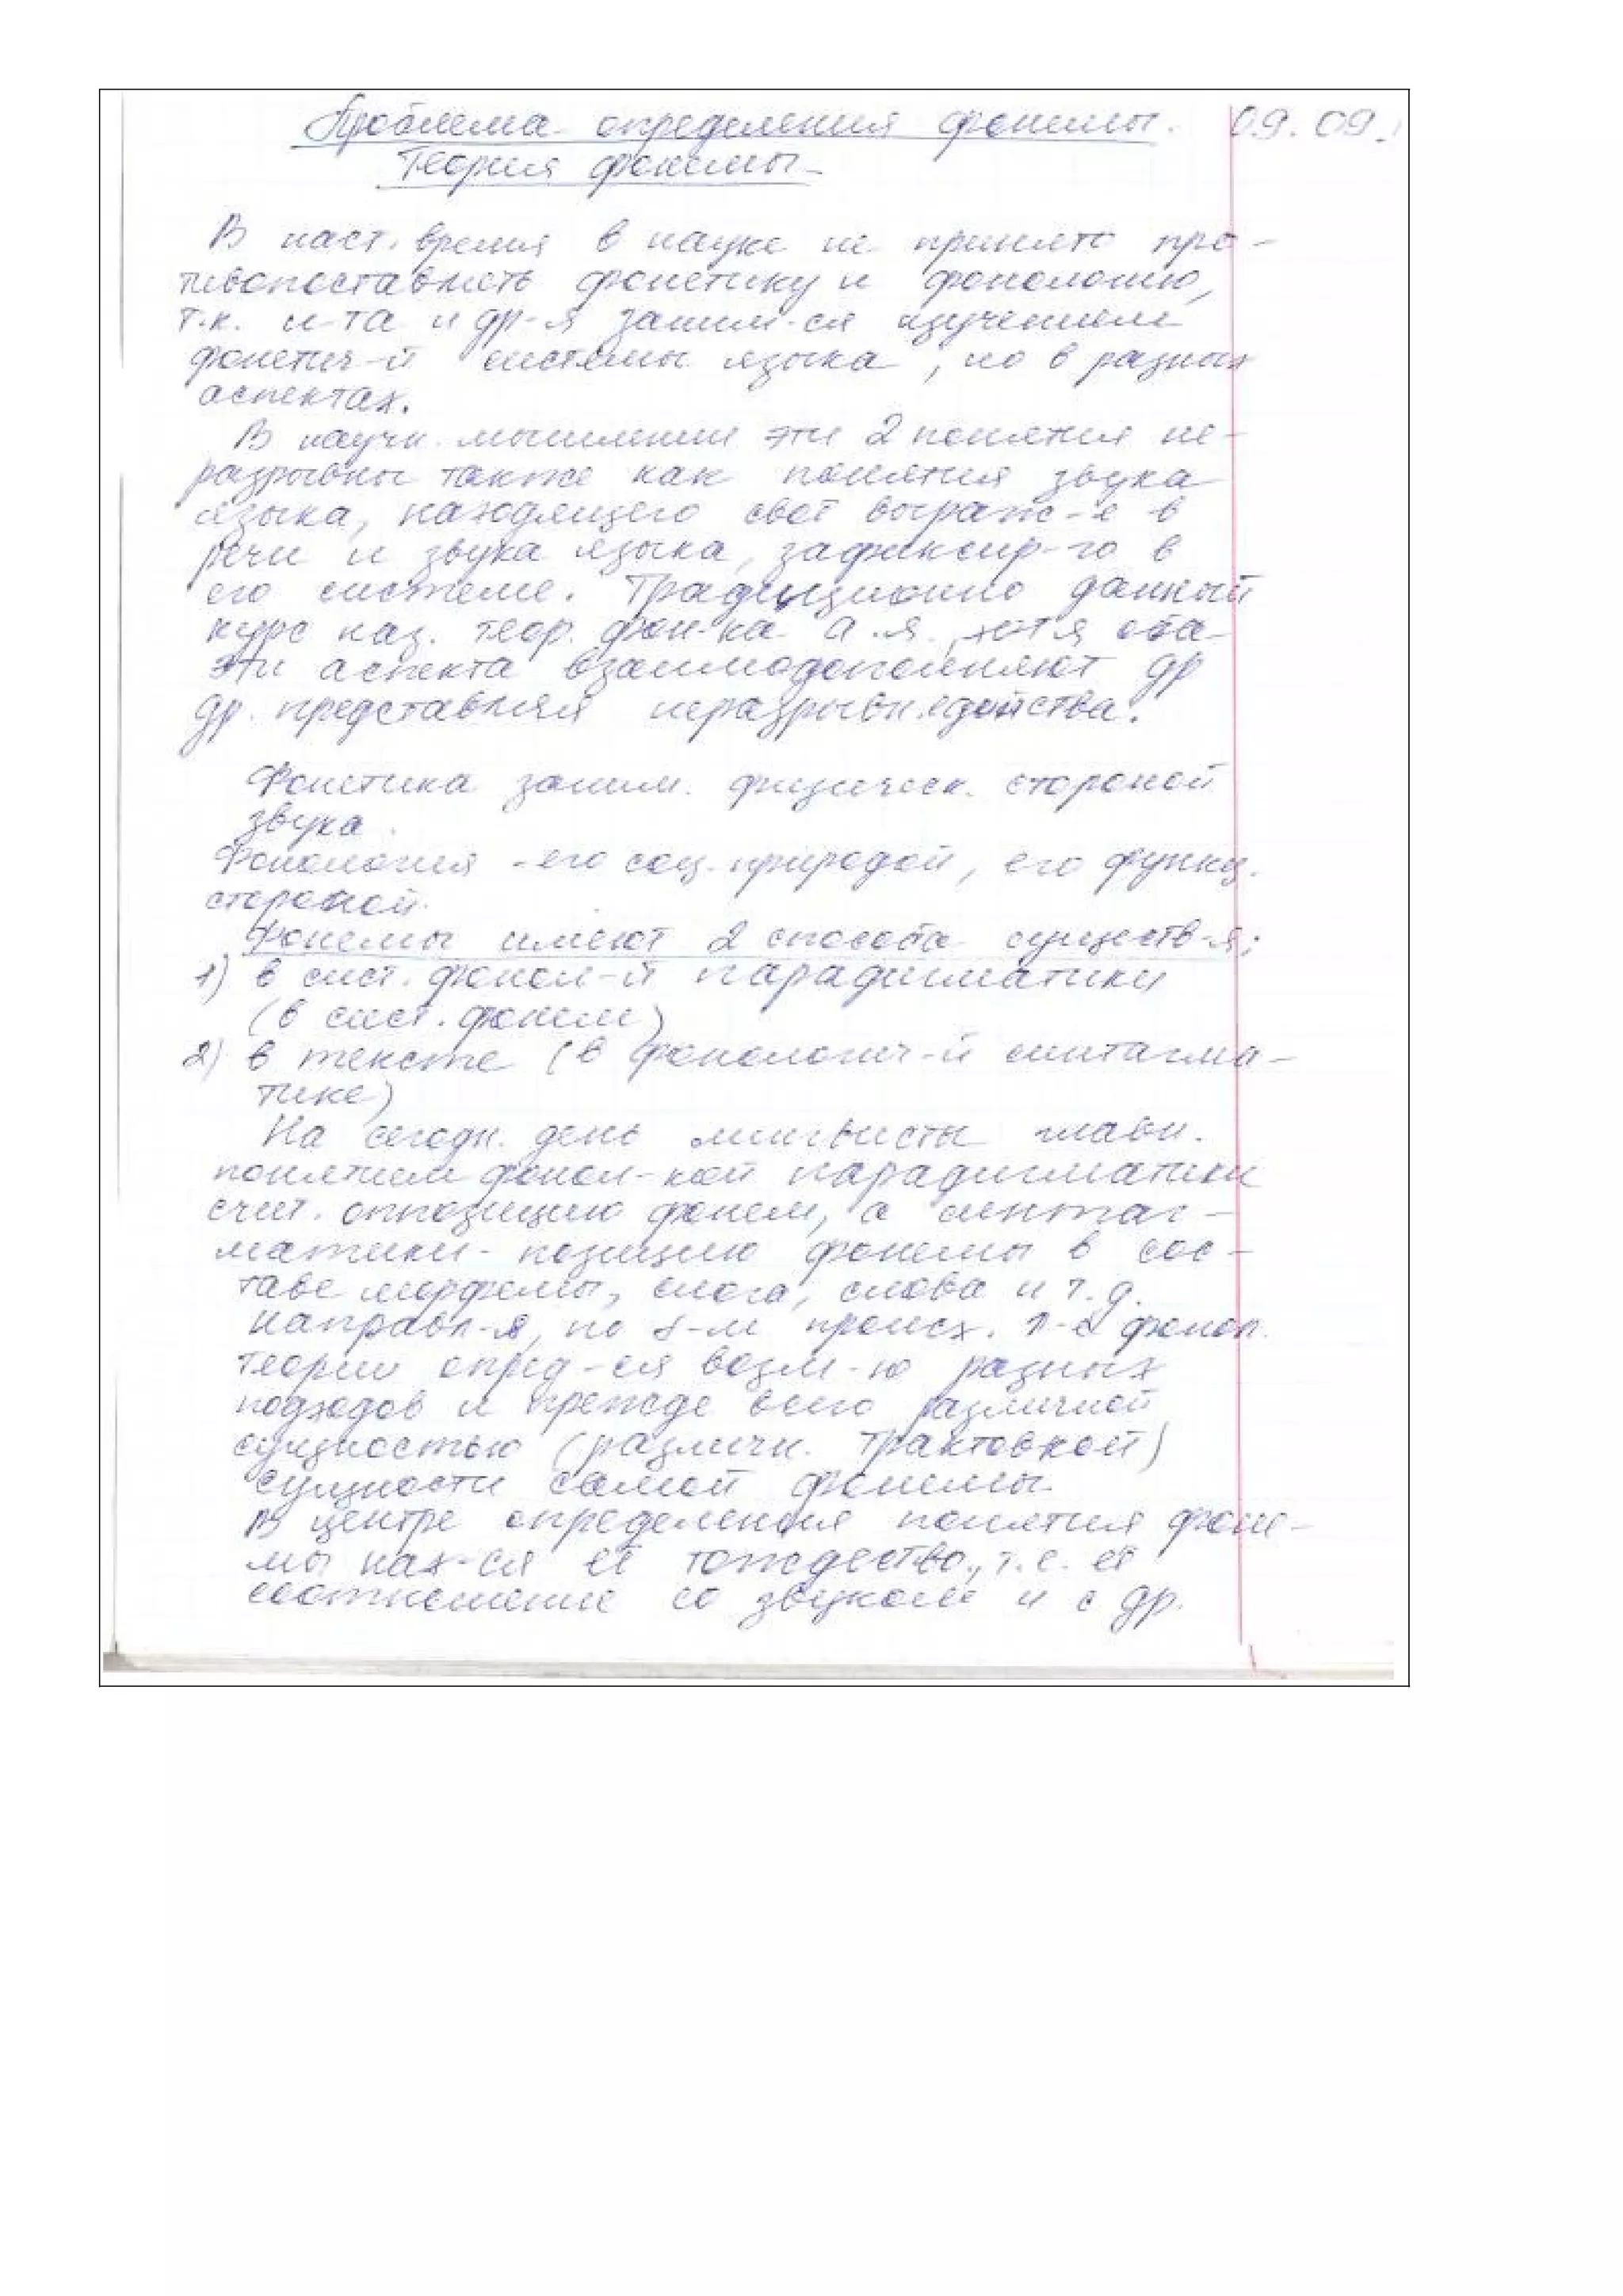 Проблема определения фонемы. 09.09.
Теория фонемы.
В наст. время в науке не принято про-
тивопоставлять фонетику и фонологию,
т.к. и та и др-я заним-ся изучением
фонетич-й системы языка, но в разных
аспектах.
В научн. мышлении эти 2 понятия не-
разрывны также как понятия звука
языка, находящего своё выраж-е в
речи и звука языка, зафиксир-го в
его системе. Традиционно данный
курс наз. теор. фон-ка а.я. хотя оба
эти аспекта взаимодополняют др
др. представляя неразрывн. единства.
Фонетика заним. физическ. стороной
звука.
Фонология - его соц. природой, его функц.
стороной.
Фонемы имеют 2 способа существ-я:
1) в сист. фонол-й парадигматики
(в сист. фонем)
2) в тексте (в фонологич-й синтагма-
тике)
На сегодн. день лингвисты главн.
понятием фонол-кой парадигматики
счит. оппозицию фонем, а синтаг-
матики - позицию фонемы в сос-
таве морфемы, слога, слова и т.д.
Направл-я, по к-м происх. фонол.
теории опред-ся возм-ю разных
подходов и прежде всего различной
сущностью (различн. трактовкой)
сущности самой фонемы.
В центре определения понятия фоне-
мы нах-ся её тождество, т.е. её
соотношение со звуком и с др.